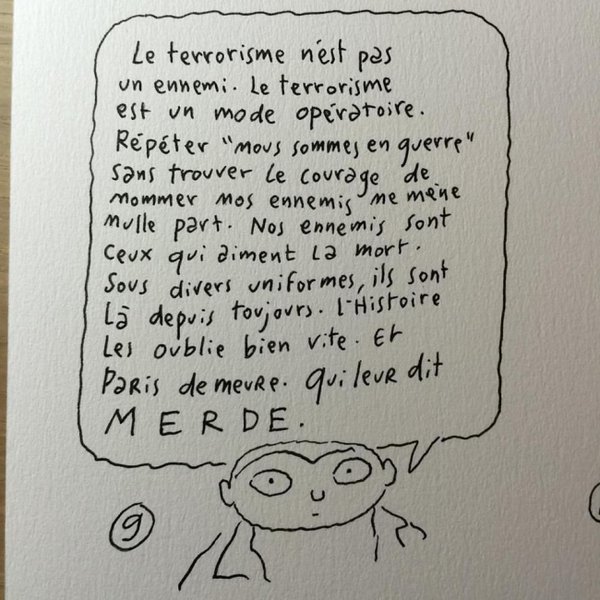 Le terrorisme n'est pas
un ennemi. Le terrorisme
est un mode opératoire.
Répéter "nous sommes en guerre"
sans trouver le courage de
nommer nos ennemis ne mène
nulle part. Nos ennemis sont
ceux qui aiment la mort.
Sous divers uniformes, ils sont
là depuis toujours. L'Histoire
les oublie bien vite. Et
PARIS demeure. Qui leur dit
MERDE.
9